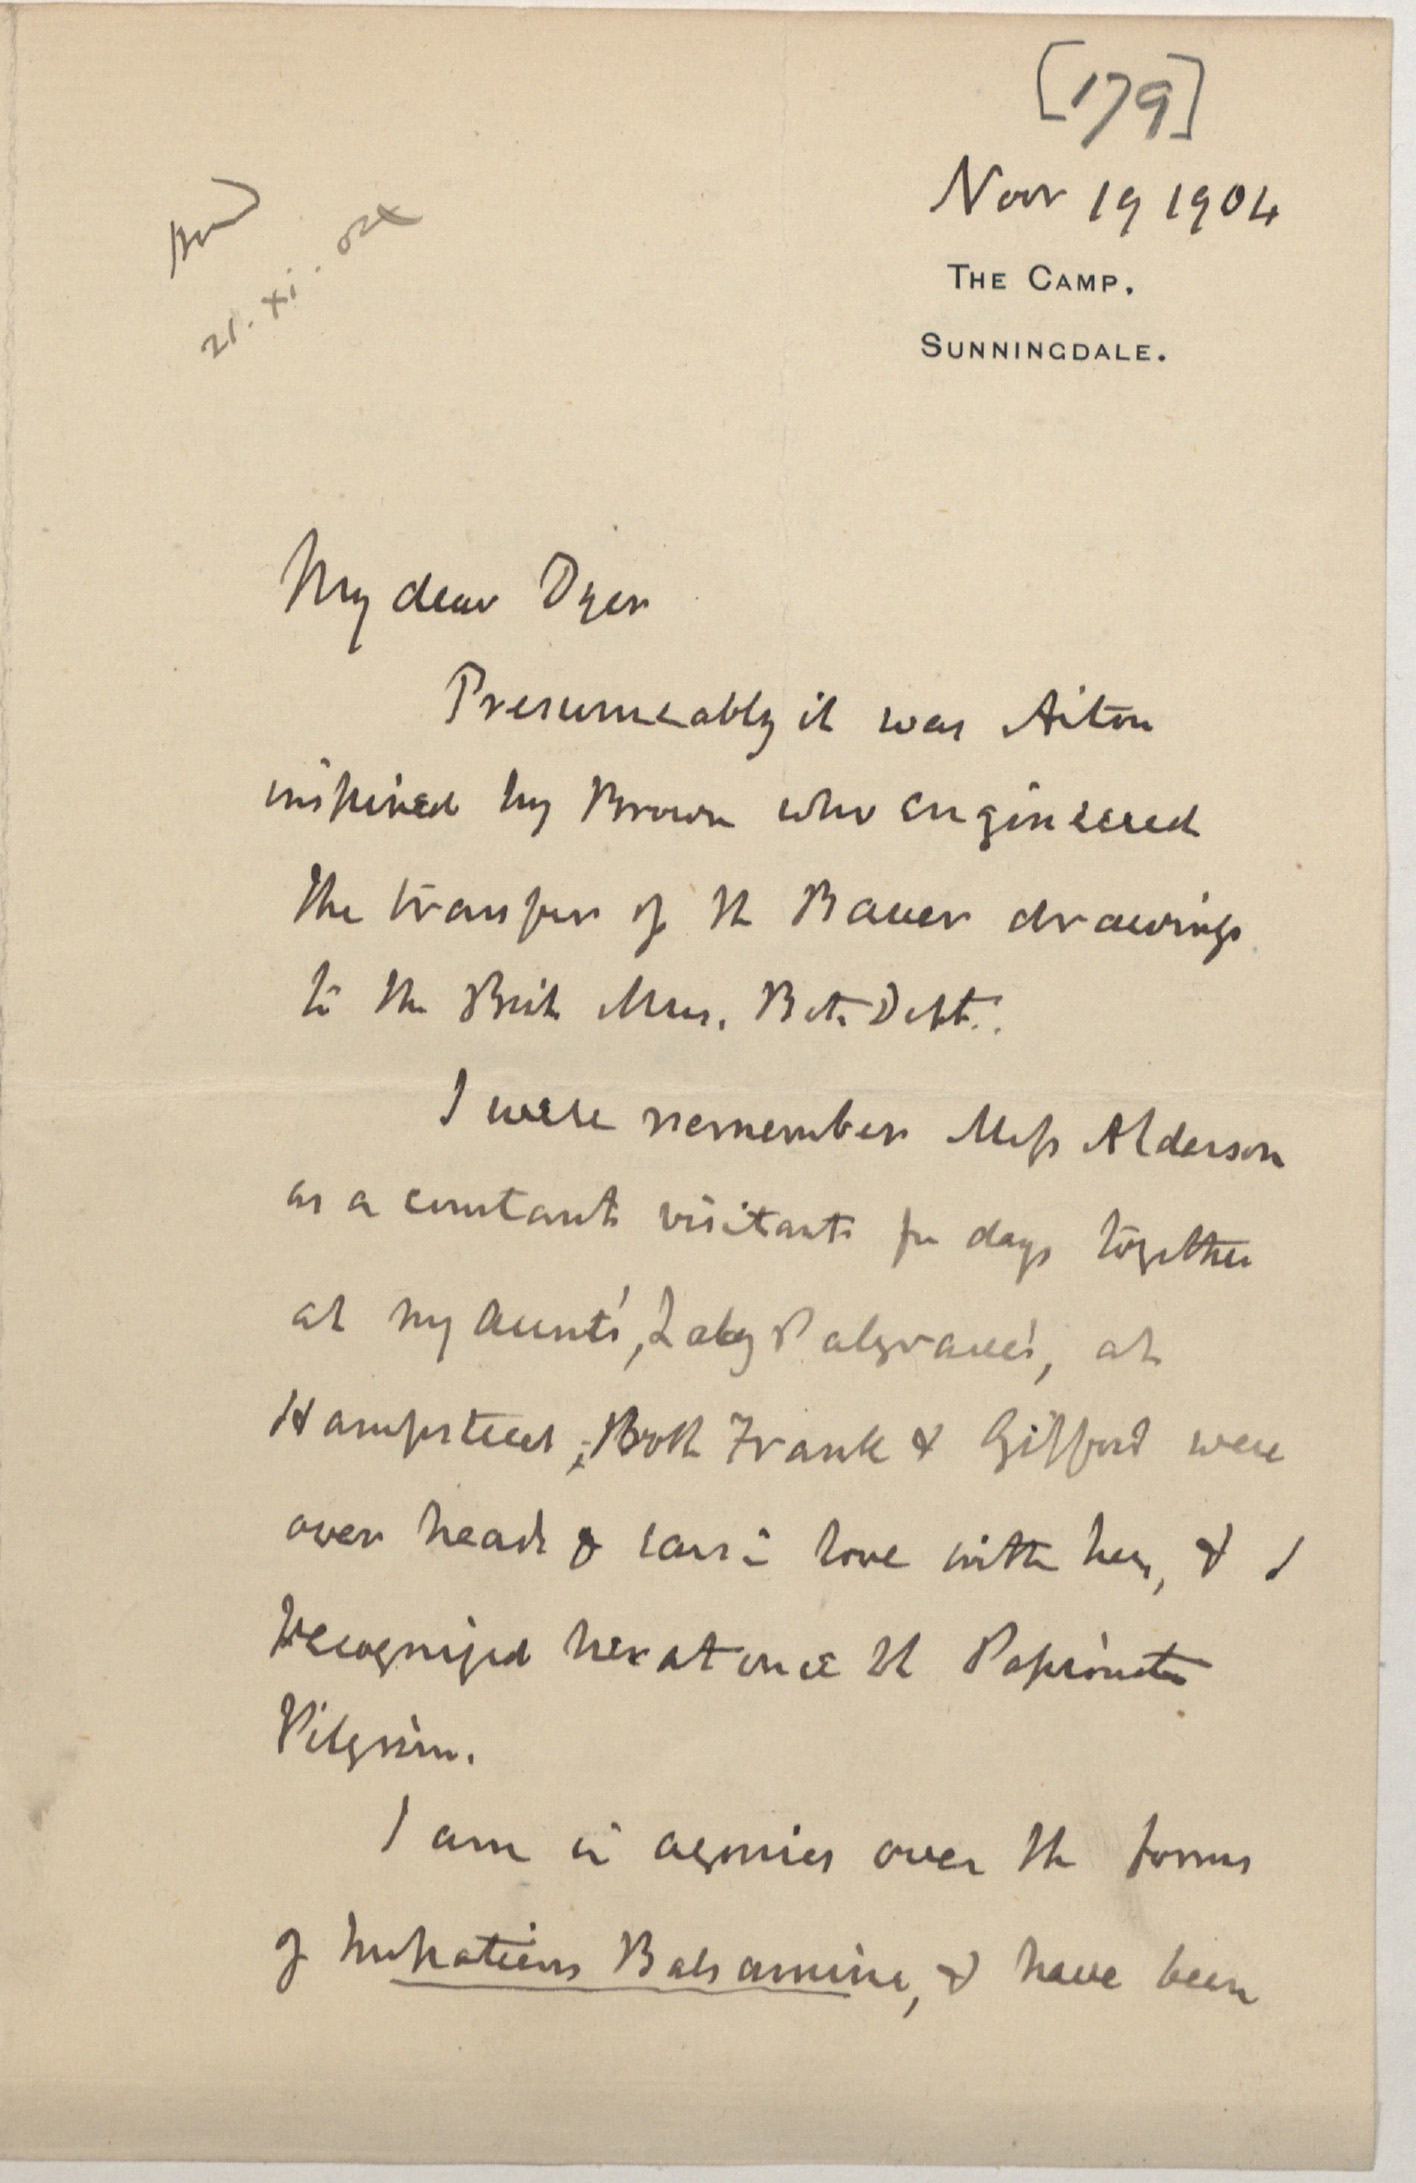 [179]
Nov 19 1904
21.xi.04
THE CAMP.
SUNNINGDALE.
My dear Dyer
Presumeably it was Aiton
inspired by Brown who engineered
the transfer of the Bauer drawings
to the Brit Mus. Bot. Dept.
I well remember Miss Alderson
as a constant visitant for days together
at my Aunt's, Lady Palgrave's, at
Hampstead; Both Frank & Gifford were
over head & ears in love with her, & I
recognized her at once the Passionate
Pilgrim.
I am in agonies over the forms
of Impatiens Balsamina, & have been